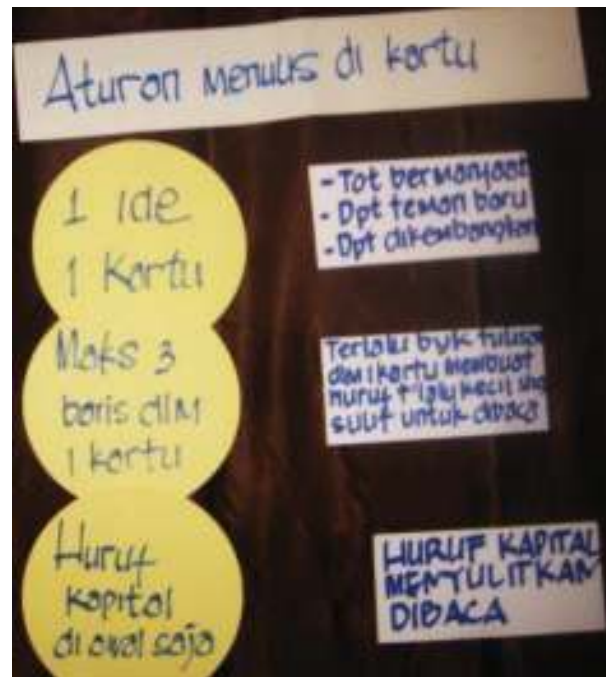 Aturan menulis di kartu
1 ide
1 Kartu
- Tot bermanfaat
- Dpt teman baru
- Dpt dikembangkan
Maks 3
baris dlm
1 kartu
Terlalu byk tulisan
dlm 1 kartu membuat
huruf t'lalu kecil
sulit untuk dibaca
Huruf
kapital
di awal saja
HURUF KAPITAL
MENYULITKAN
DIBACA